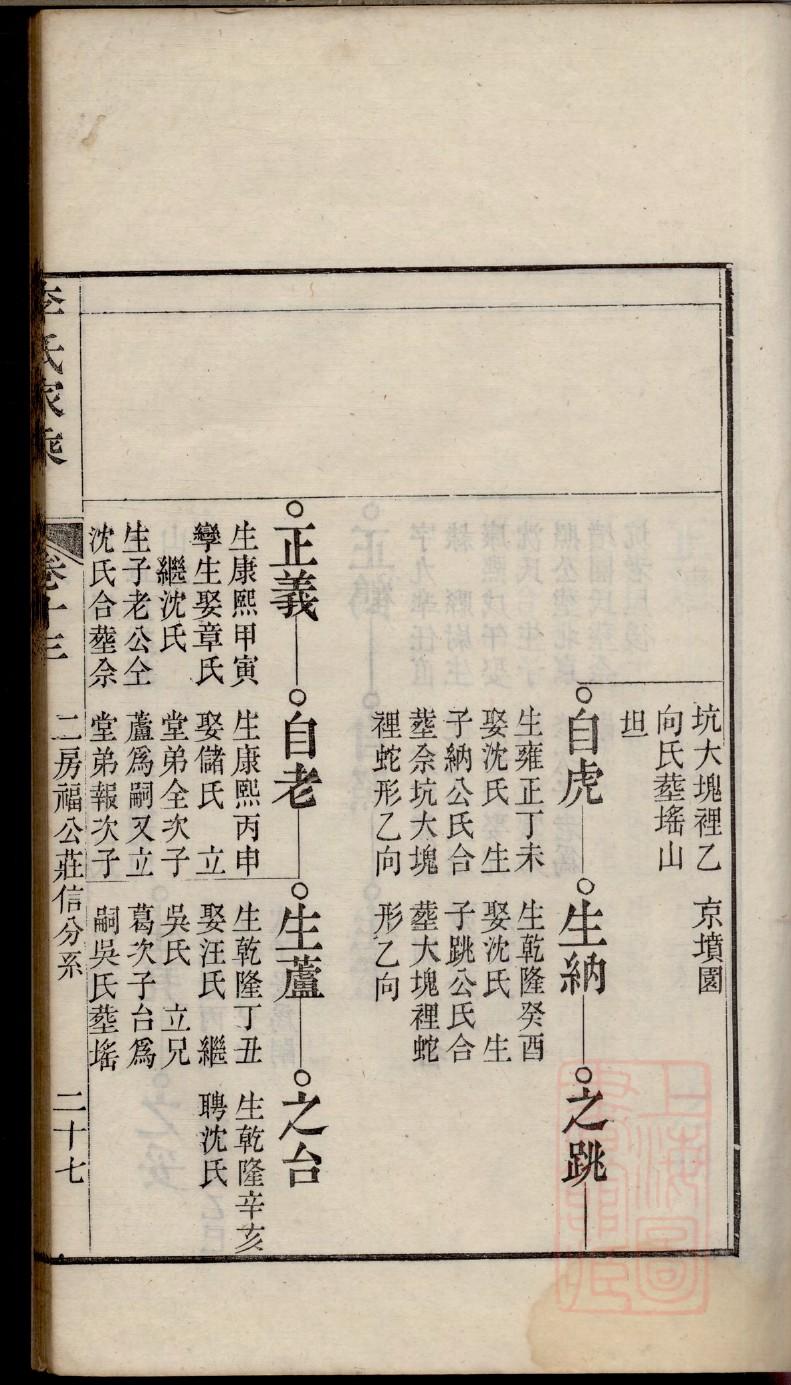 坑大塊裡乙
向氏塟墧山
坦
京墳園
自虎
生雍正丁未
娶沈氏 生
子納公氏合
塟佘坑大塊
裡蛇形乙向
生納
生乾隆癸酉
娶沈氏 生
子跳公氏合
塟大塊裡蛇
形乙向
之跳
正義
生康熙甲寅
孿生娶章氏
繼沈氏
生子老公仝
沈氏合塟佘
自老
生康熙丙申
娶儲氏 立
堂弟全次子
蘆爲嗣又立
堂弟報次子
生蘆
生乾隆丁丑
娶汪氏 繼
吳氏 立兄
葛次子台爲
嗣吳氏塟墧
之台
生乾隆辛亥
聘沈氏
李氏家乘
卷十三
二房福公莊信分系
二十七